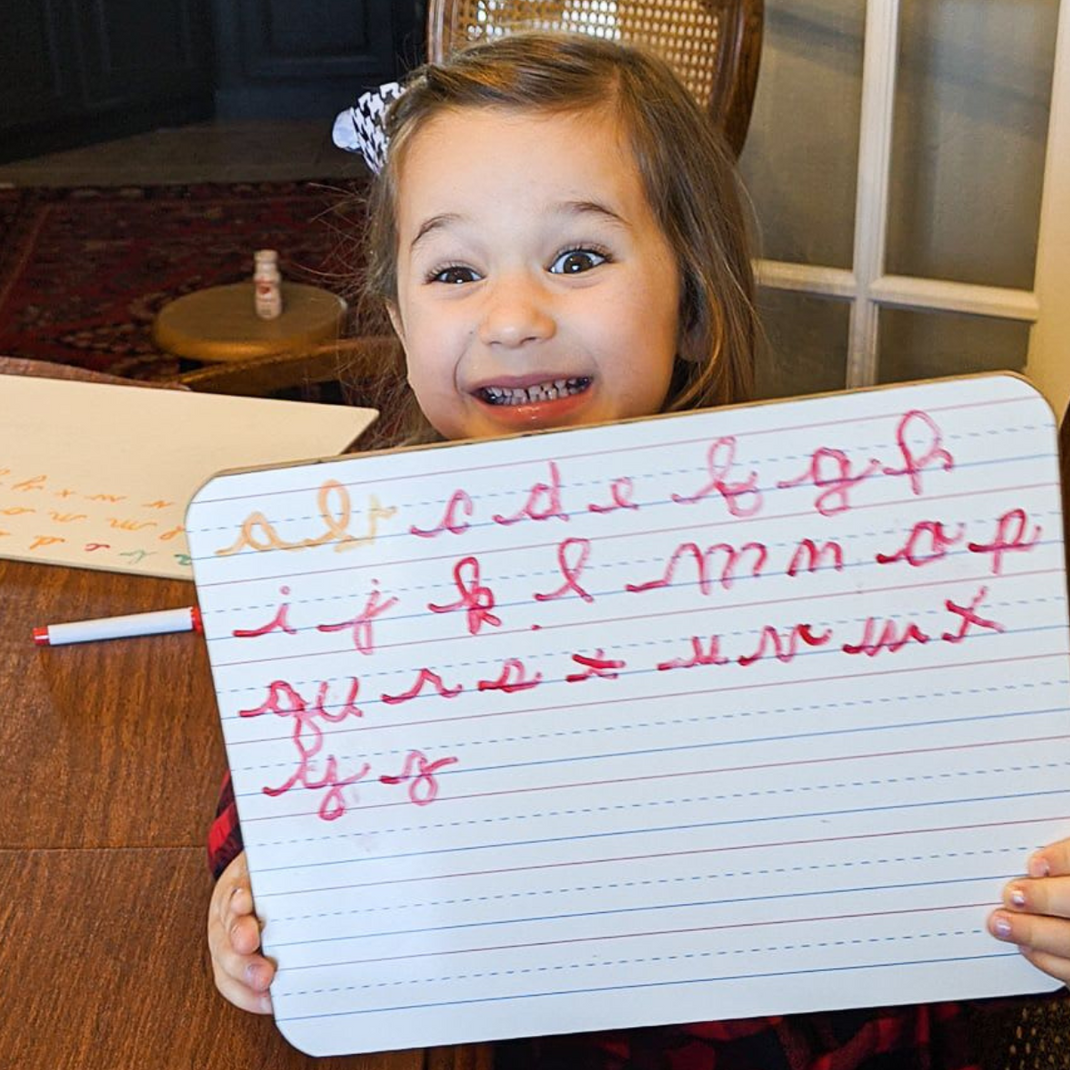 a b c d e f g h
i j k l m n o p
qu r s t u v w x
y z